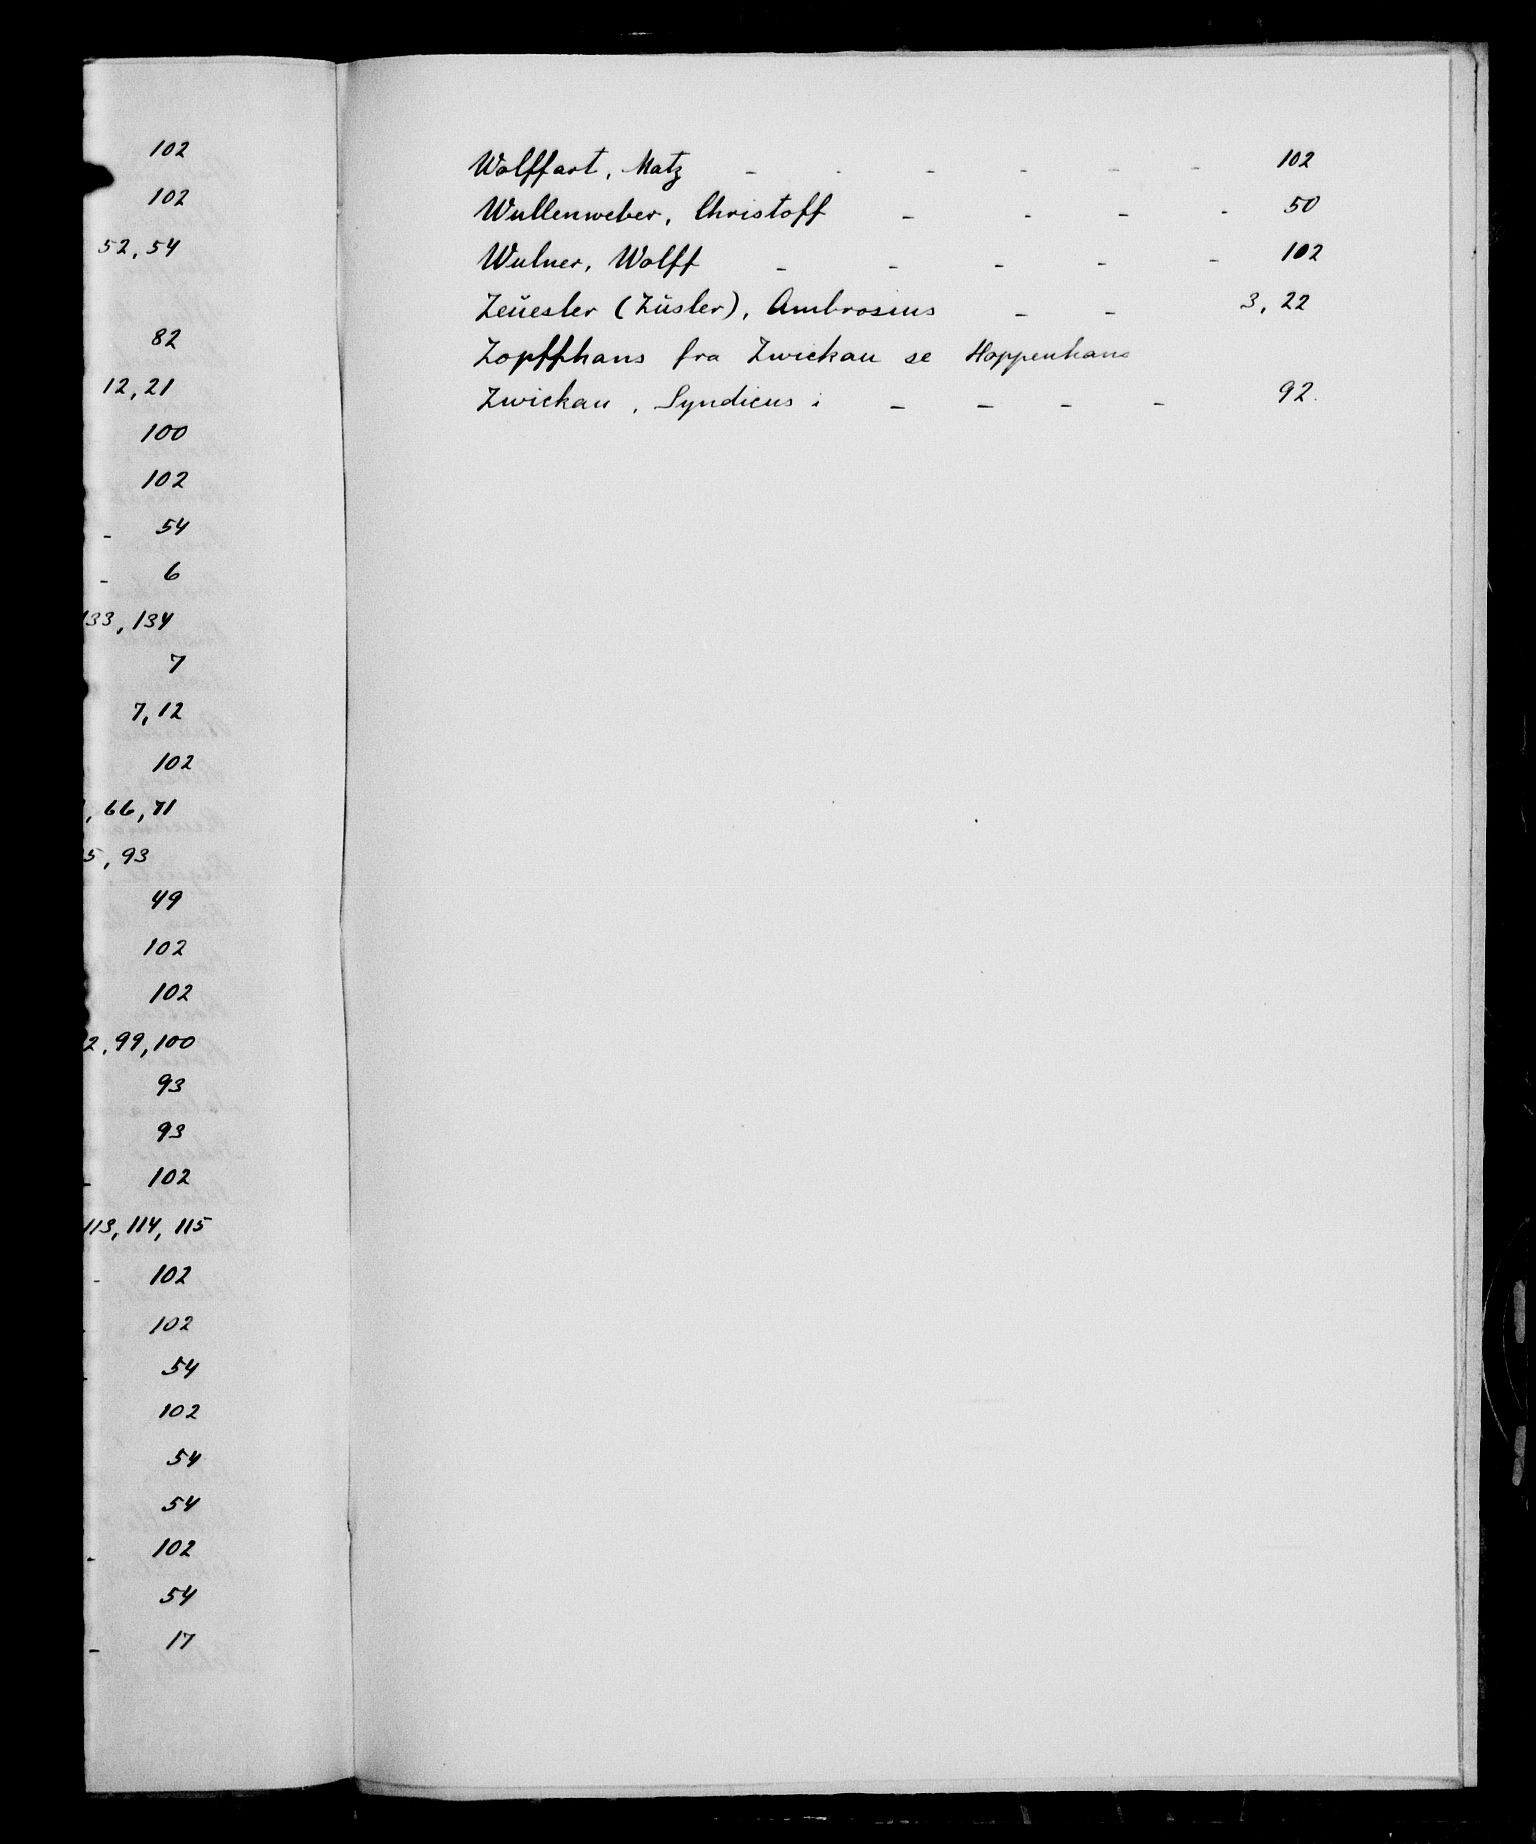 102
102
52, 54
82
12, 21
100
102
- 54
- 6
133, 134
7
7, 12
102
, 66, 71
5, 93
49
102
102
2, 99, 100
93
93
- 102
113, 114, 115
- 102
102
54
102
54
54
- 102
54
- 17
Wolffart, Matz - - - - - - 102
Wullenweber, Christoff - - - - 50
Wulner, Wolff - - - - - 102
Zeüesler (Züsler), Ambrosius - - 3, 22
Zopffhans fra Zwickau se Hoppenhans
Zwickau, Syndicus i - - - - 92.